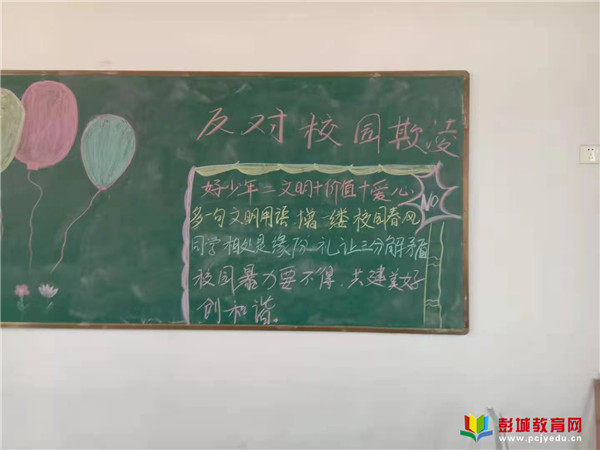 反对校园欺凌
好少年=文明+价值+爱心
NO
多一句文明用语 增一缕校园春风
同学相处是缘份 礼让三分解矛盾
校园暴力要不得,共建美好
创和谐.
彭城教育网
www.pcjyedu.cn